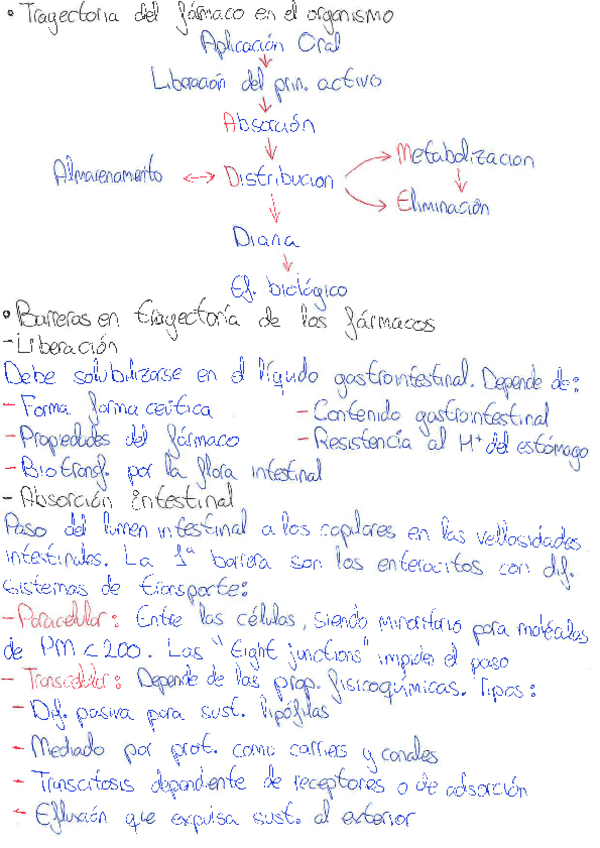 • Trayectoria del fármaco en el organismo
Aplicación Oral
Liberación del prin. activo
Absorción
Almacenamiento ↔ Distribucion → Metabolizacion
Eliminación
Diana
Ef. biológico
• Barreras en trayectoria de los fármacos
- Liberación
Debe solubilizarse en el líquido gastrointestinal. Depende de:
- Forma farmaceútica - Contenido gastrointestinal
- Propiedades del fármaco - Resistencia al H+ del estómago
- Biotransf. por la flora intestinal
- Absorción Intestinal
Paso del lumen intestinal a los capilares en las vellosidades
intestinales. La 1ª barrera son los enterocitos con dif.
sistemas de transporte:
- Paracelular: Entre las células, siendo minoritario para moléculas
de PM < 200. Las "tight junctions" impiden el paso
- Transcelular: Depende de las prop. fisicoquímicas. Tipos:
- Dif. pasiva para sust. lipófilas
- Mediado por prot. como carriers y canales
- Transcitosis dependiente de receptores o de adsorción
- Efluxión que expulsa sust. al exterior